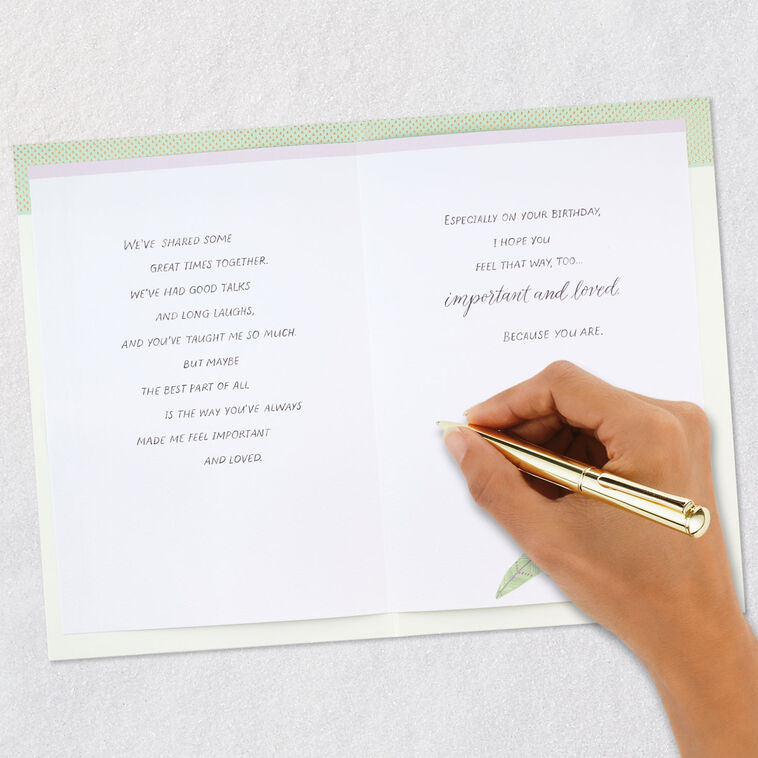 WE'VE SHARED SOME
GREAT TIMES TOGETHER.
WE'VE HAD GOOD TALKS
AND LONG LAUGHS,
AND YOU'VE TAUGHT ME SO MUCH.
BUT MAYBE
THE BEST PART OF ALL
IS THE WAY YOU'VE ALWAYS
MADE ME FEEL IMPORTANT
AND LOVED.
ESPECIALLY ON YOUR BIRTHDAY,
I HOPE YOU
FEEL THAT WAY, TOO...
important and loved.
BECAUSE YOU ARE.